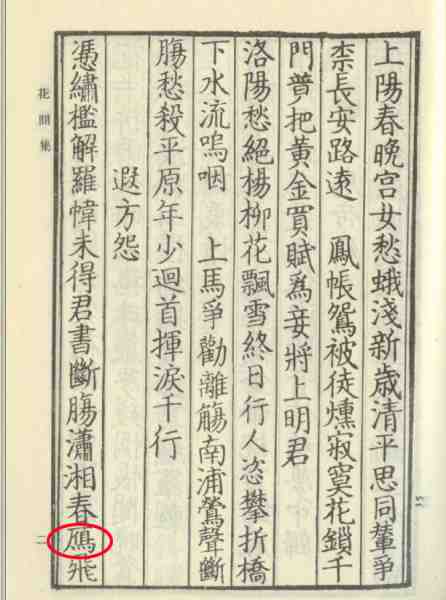 上陽春晚宫女愁蛾淺新歲清平思同輦爭
柰長安路遠　鳳帳鴛被徒燻寂寞花鎖千
門把黃金買賦爲妾將上明君
洛陽愁絕楊柳花飄雪終日行人恣攀折橋
下水流嗚咽　上馬爭勸離觴南浦鶯聲斷
腸愁殺平原年少迴首揮淚千行
遐方怨
憑繡檻解羅幃未得君書斷腸瀟湘春鴈飛
花間集
二